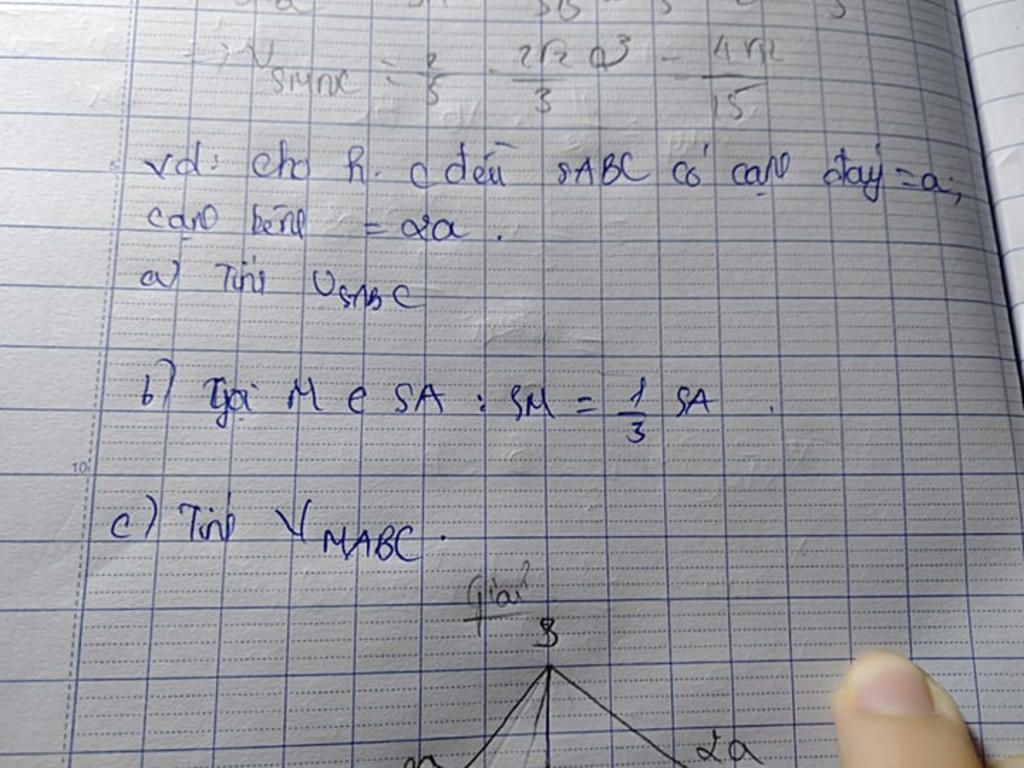 => V SMNC = 2/5 . 2√2 a³/3 = 4√2/15
vd: cho h. c đều SABC có cạnh đáy = a;
cạnh bên = 2a .
a) Tính V SABC
10
b) Gọi M ∈ SA : SM = 1/3 SA .
c) Tính V MABC .
Giải
S
2a